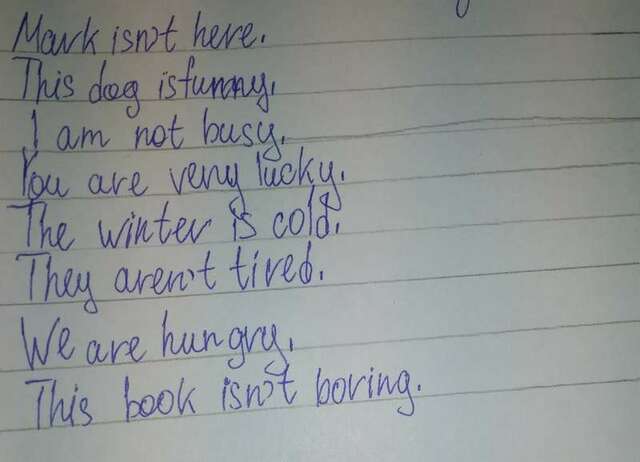 Mark isn't here.
This dog is funny.
I am not busy.
You are very lucky.
The winter is cold.
They aren't tired.
We are hungry.
This book isn't boring.